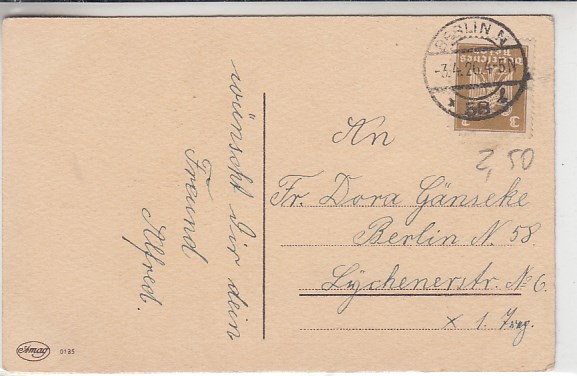 BERLIN N.
-3.4.26.4-5N
* 58 *
Deutsches
Reich
3 3
2,50
wünscht Dir dein
Freund
Alfred.
An
Fr. Dora Gänseke
Berlin N. 58.
Lychenerstr. No 6.
x 1. Trep.
Amag
0135